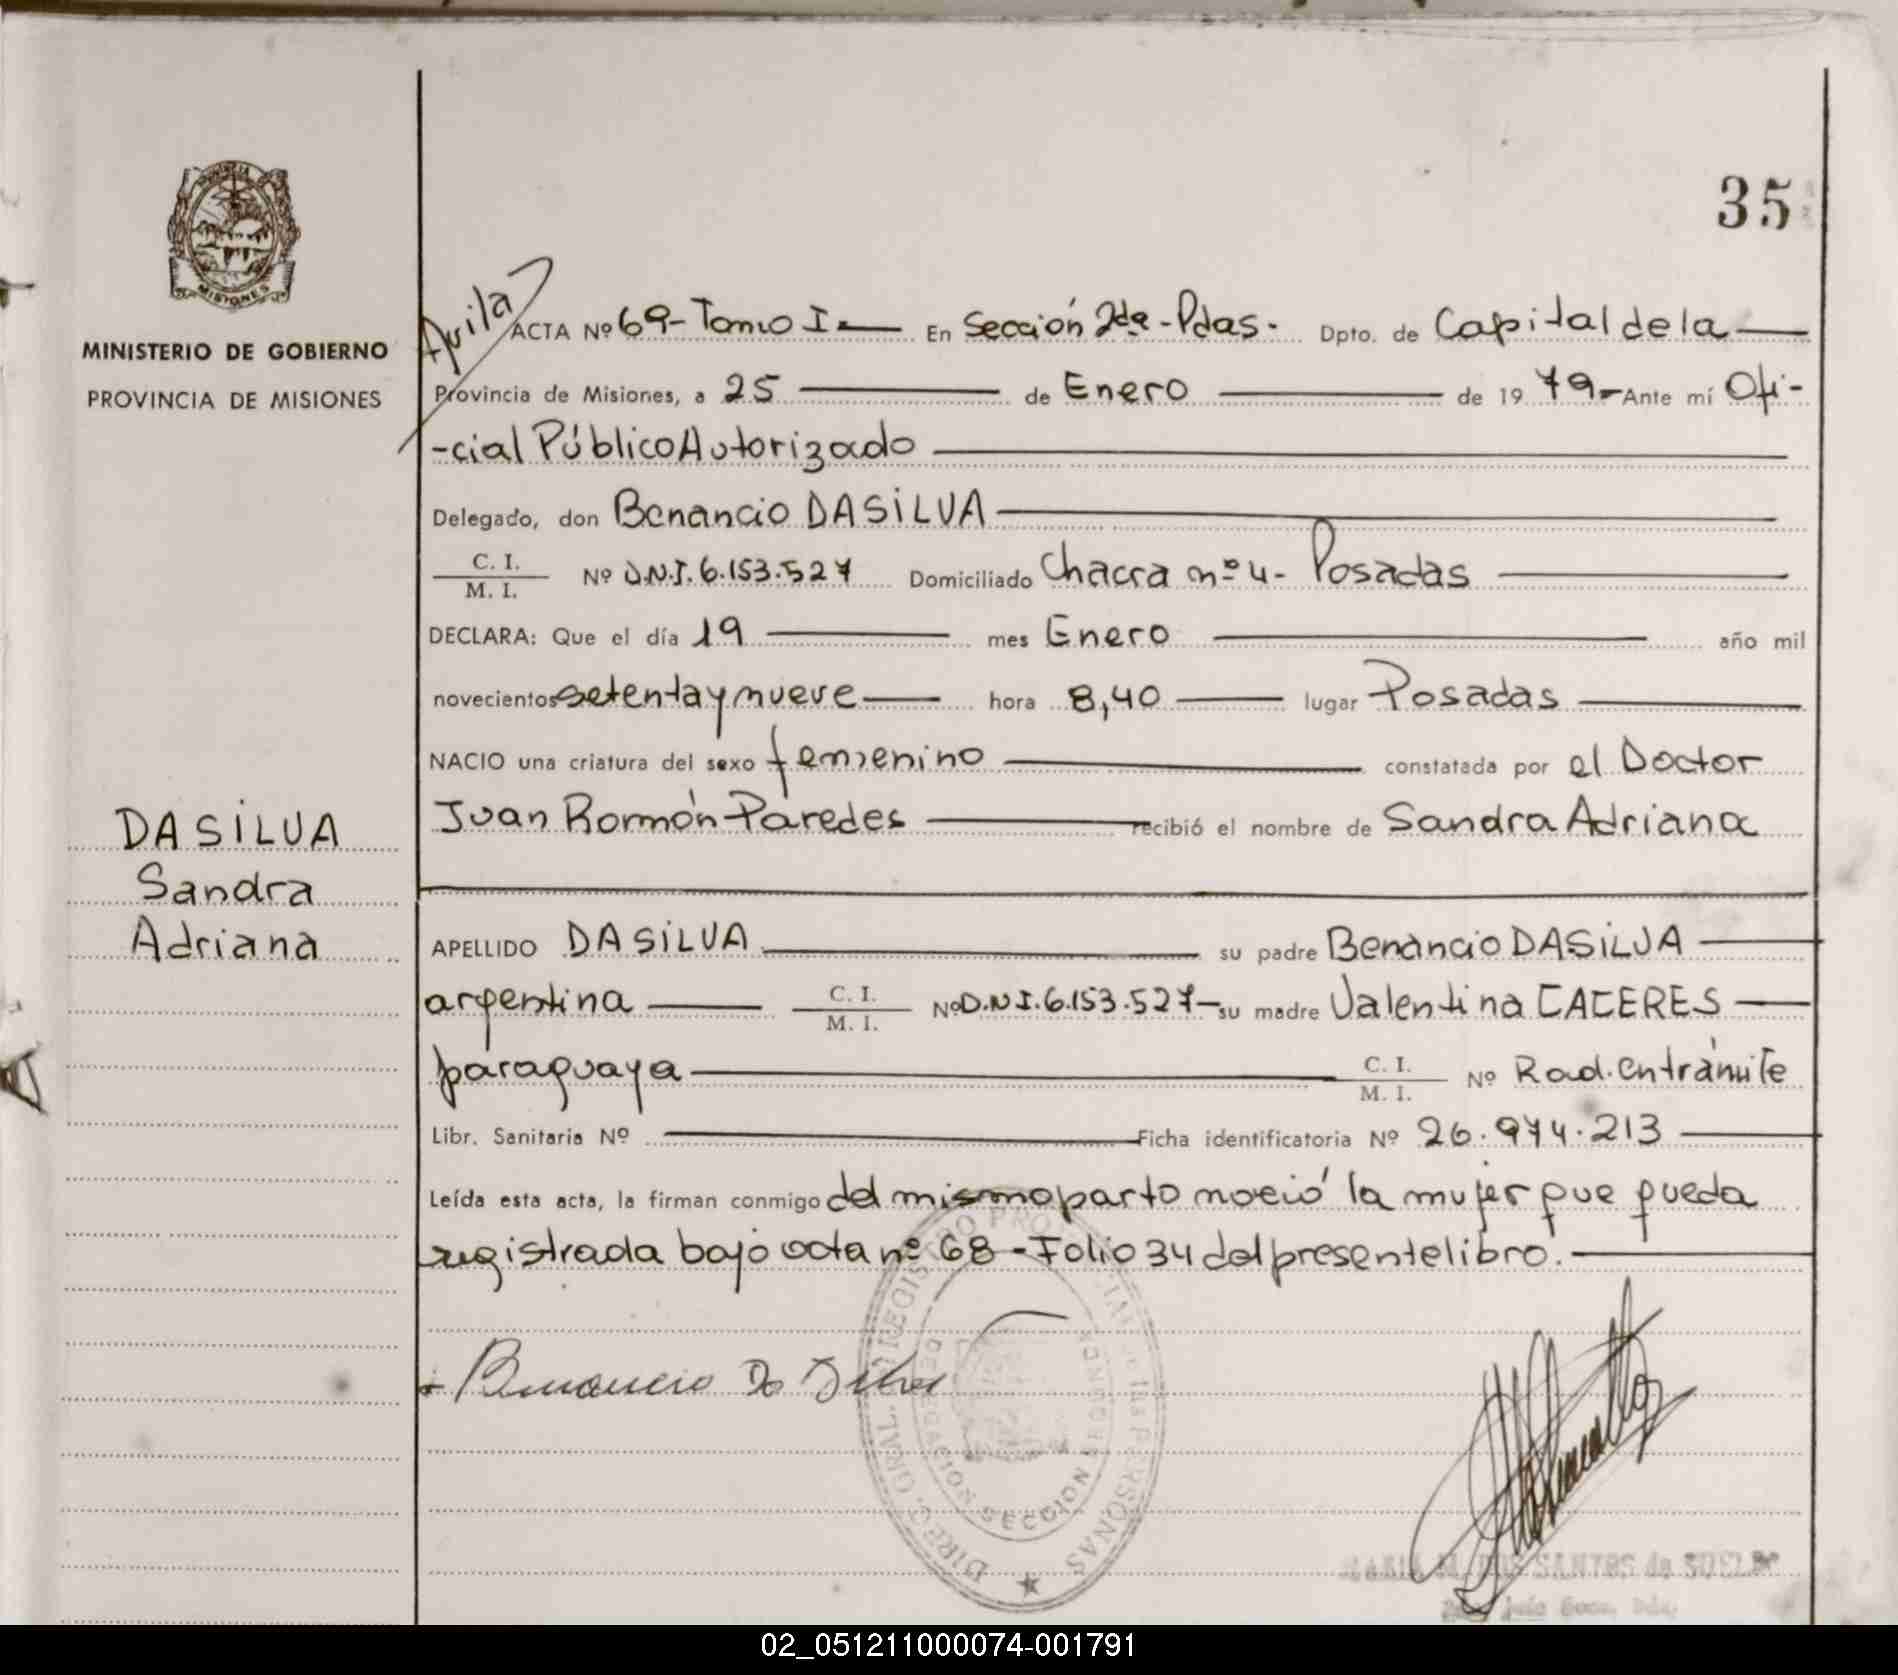 35
MISIONES
MINISTERIO DE GOBIERNO
PROVINCIA DE MISIONES
DASILVA
Sandra
Adriana
Avila
ACTA Nº 69-Tomo I- En Sección 2da-Pdas. Dpto. de Capital de la
Provincia de Misiones, a 25 de Enero de 19 79- Ante mí Ofi-
-cial Público Autorizado
Delegado, don Benancio DASILVA
C. I. / M. I. Nº D.N.I. 6.153.527 Domiciliado Chacra nº 4- Posadas
DECLARA: Que el día 19 mes Enero año mil
novecientos setenta y nueve hora 8,40 lugar Posadas
NACIO una criatura del sexo femenino constatada por el Doctor
Juan Ramón Paredes recibió el nombre de Sandra Adriana
APELLIDO DASILVA su padre Benancio DASILVA
argentina C. I. / M. I. Nº D.N.I. 6.153.527- su madre Valentina CACERES
paraguaya C. I. / M. I. Nº Rad. en trámite
Libr. Sanitaria Nº Ficha identificatoria Nº 26.974.213
Leída esta acta, la firman conmigo del mismo parto nació la mujer que queda
registrada bajo acta nº 68-Folio 34 del presente libro.
Benancio Da Silva
DIREC. GRAL. REGISTRO PROVINCIAL de las PERSONAS
SECCION SEGUNDA
DOS SANTOS de
02_051211000074-001791